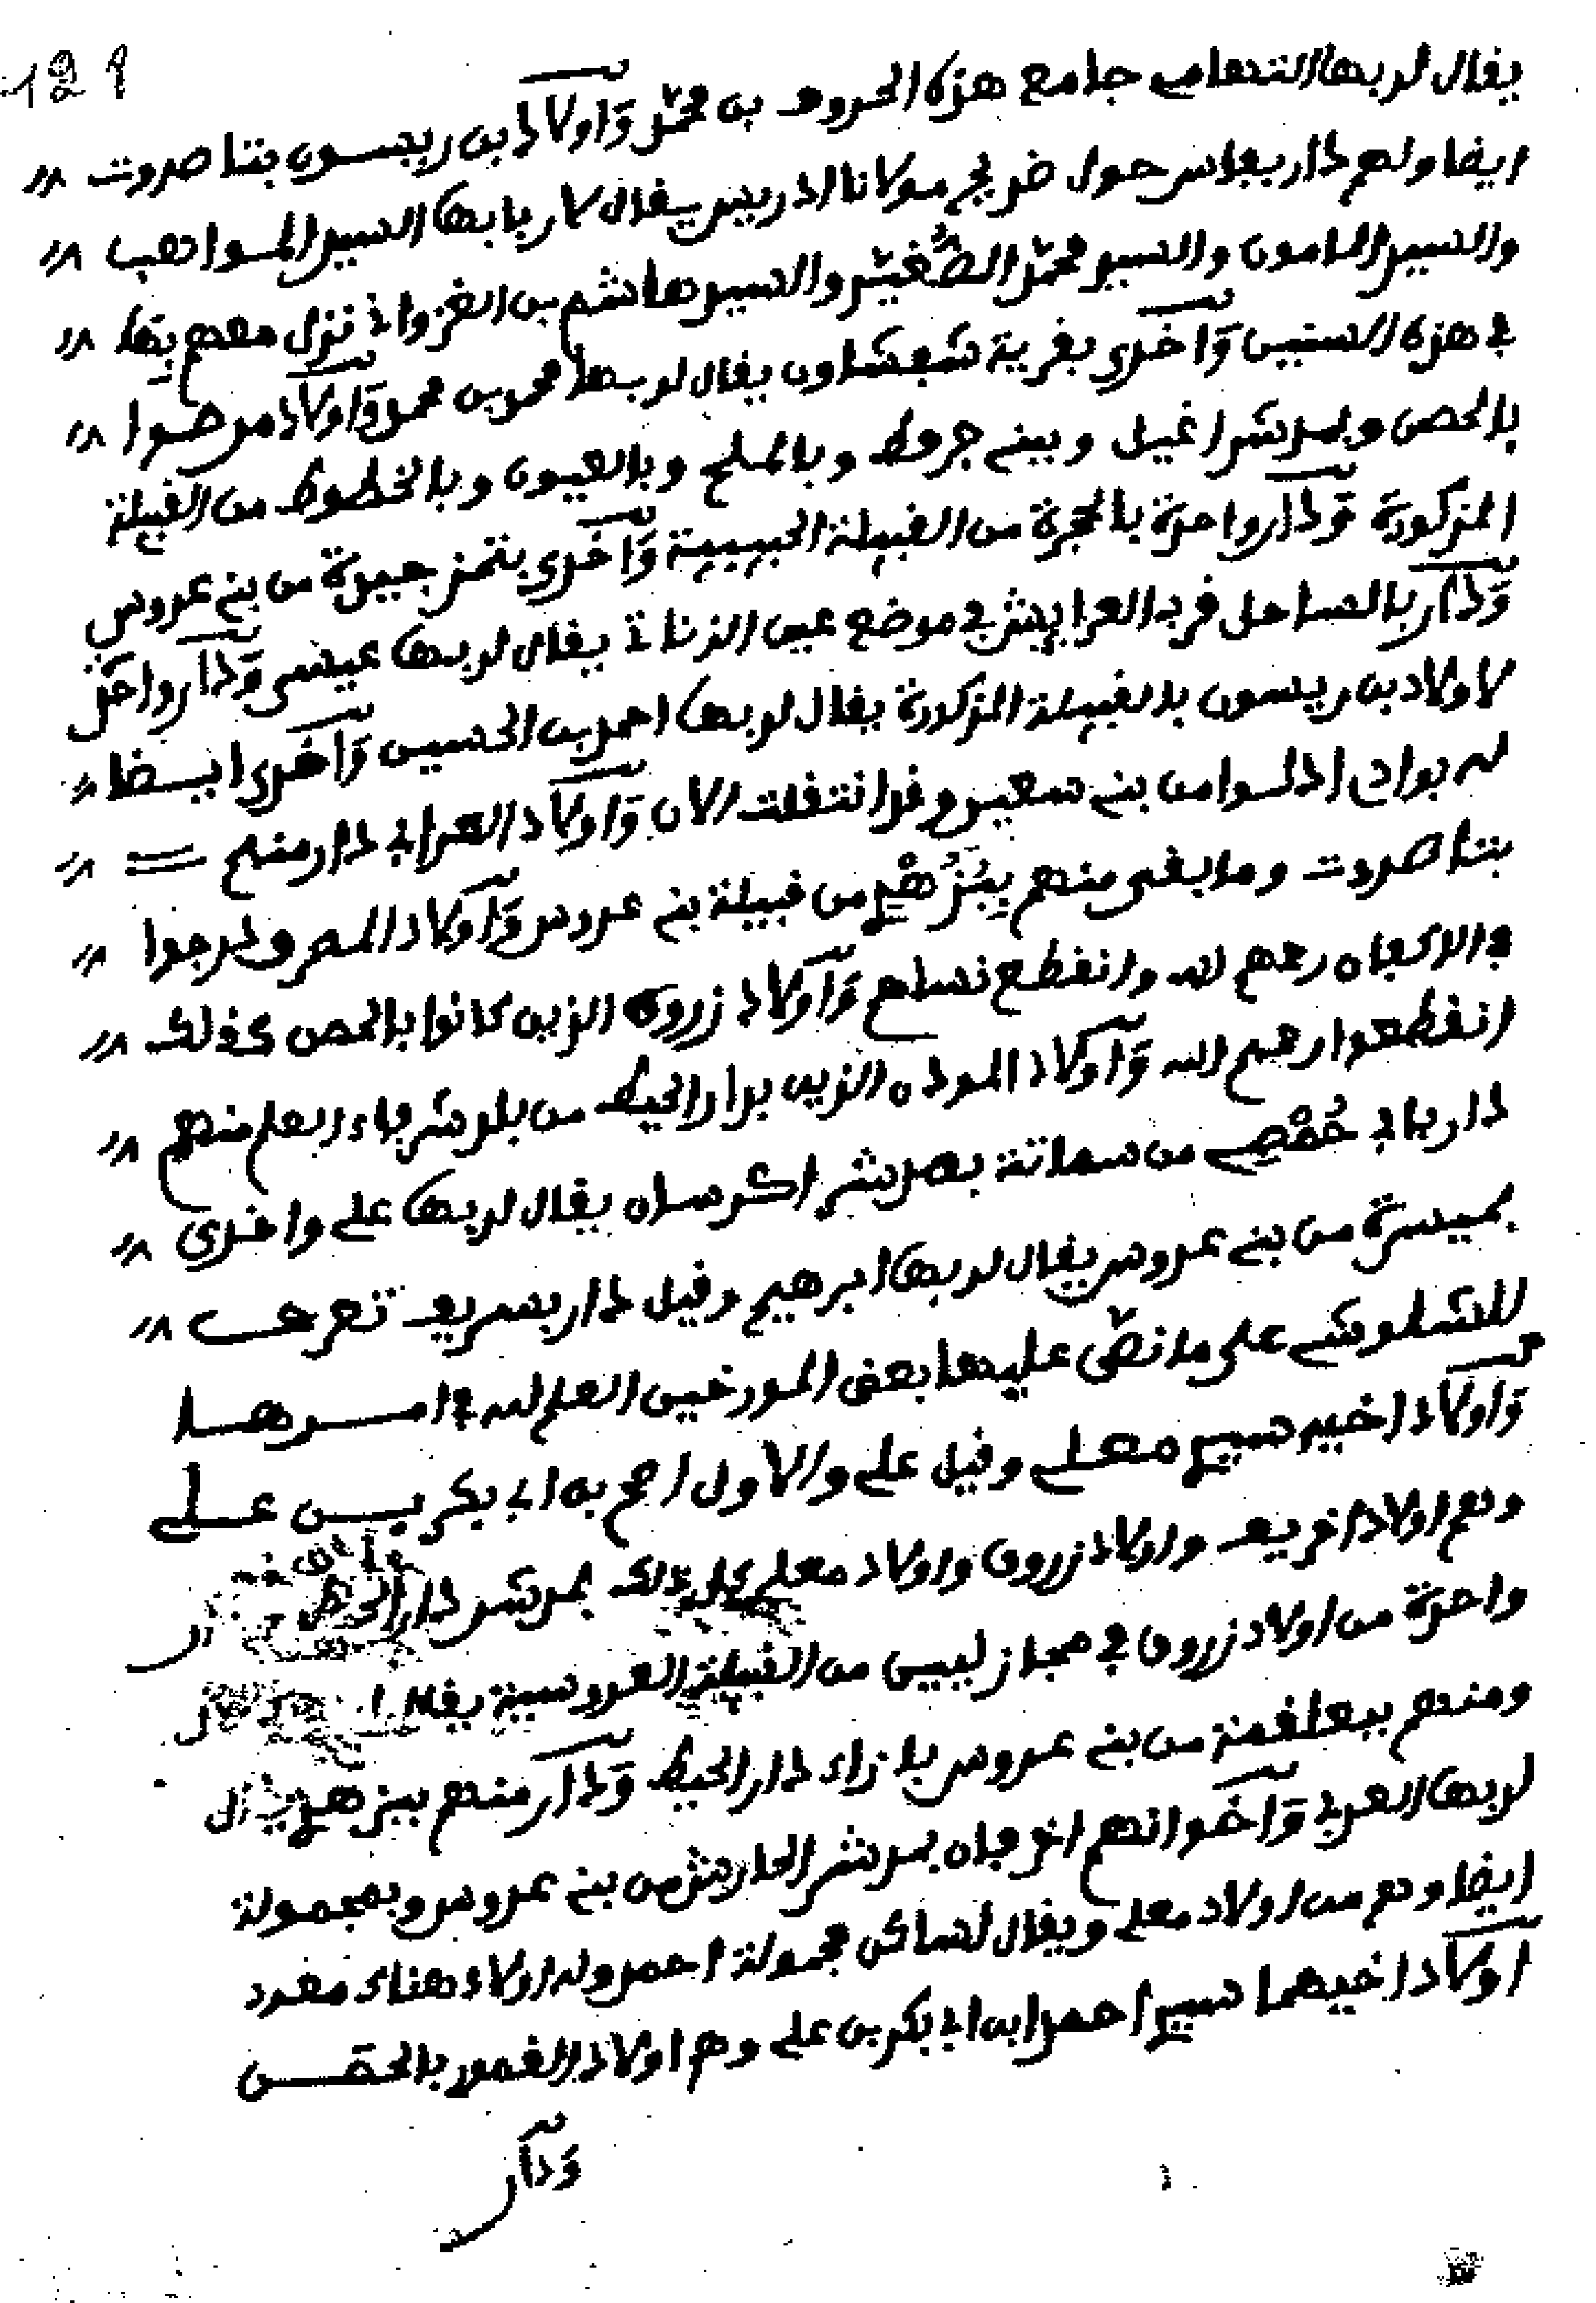 129
يقال لربها التهامي جامع هذه الحروف بن محمد وَأولاد بن ريسون بتناصروت
ايضا ولهم دار بفاس حول ضريح مولانا ادريس يقال لاربابها السيد المواهب
والسيد المامون والسيد محمد الصُّغَيَّر والسيد هاشم بن الغزوان نزل معهم بها
في هذه السنين وَأخرى بقرية شفشاون يقال لربها محمد بن محمد وَأولاد مرصوا
بالحصن وبمدشر اغيل وببني جرفط وبالملح وبالعيون وبالخطوط من القبيلة
المذكورة وَدار واحدة بالحجرة من القبيلة الحبيبية وَأخرى بتمزجيدة من بني عروس
وَدار بالساحل قرب العرايش في موضع عين الزناتي يقال لربها عيسى وَدار واحدة
لاولاد بن ريسون بالقبيلة المذكورة يقال لربها احمد بن الحسين وَأخرى ايضا
له بوادي اذلوا من بني سعيد وقد انتقلت الان وَأولاد العرابي دار منهم
بتناصروت وما بقي منهم بِبُزْهْرِ من قبيلة بني عروس وَأولاد المعروف درجوا
في الاكفاه رحمهم الله وانقطع نسلهم وَأولاد زروق الذين كانوا بالحصن كذلك
انقطعوا رحمهم الله وَأولاد المودن الذين بدار الحيط من بلد شرفاء العلم منهم
دار بابي حُمْصِي من سماتة بمدشر اكرسان يقال لربها علي واخرى
بميسرة من بني عروس يقال لربها ابرهيم وقيل دار بسريف تعرف
للشلوشي على ما نصّ عليها بعض المورخين العلم لله في امرها
وَأولاد اخيه سيدي معلى وقيل علي والاول اصح به ابي بكر بن علي
وهم اولاد افريف واولاد زروق واولاد معلى كل ذلك بمدشر دار الحيط
واحدة من اولاد زروق في مجاز لبيس من القبيلة العروسية يقال
ومنهم ببعلقمة من بني عروس بازاء دار الحيط وَدار منهم ببزهر يقال
لربها العربي وَأخوانهم افرجان بمدشر الحاريش من بني عروس وبمجمولة
ايضا وهم من اولاد معلى ويقال لساكن مجمولة احمد وله اولاد هناك مفرد
أولاد اخيهما سيدي احمد ابن ابي بكر بن علي وهم اولاد الغمور بالحصن
وَدار